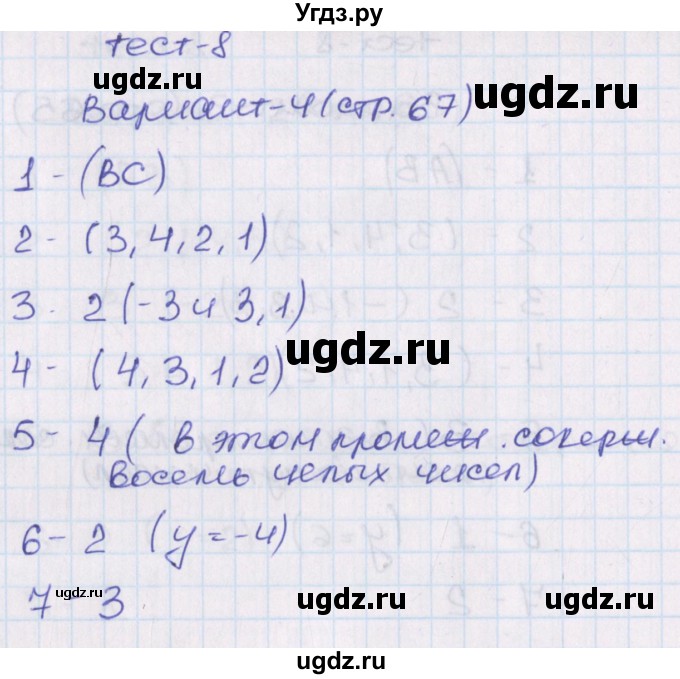 Угдз.ру
тест-8
ugdz.ru
ugdz.ru
Вариант-4 (стр. 67)
1 - (ВС)
ugdz.ru
2 - (3, 4, 2, 1)
3. 2 (-3 и 3, 1)
ugdz.ru
4 - (4, 3, 1, 2)
5 - 4 ( в этом
Восемь целых чисел)
6 - 2 (y = -4)
7 - 3
ugdz.ru
ugdz.ru
ugdz.ru
ugdz.ru